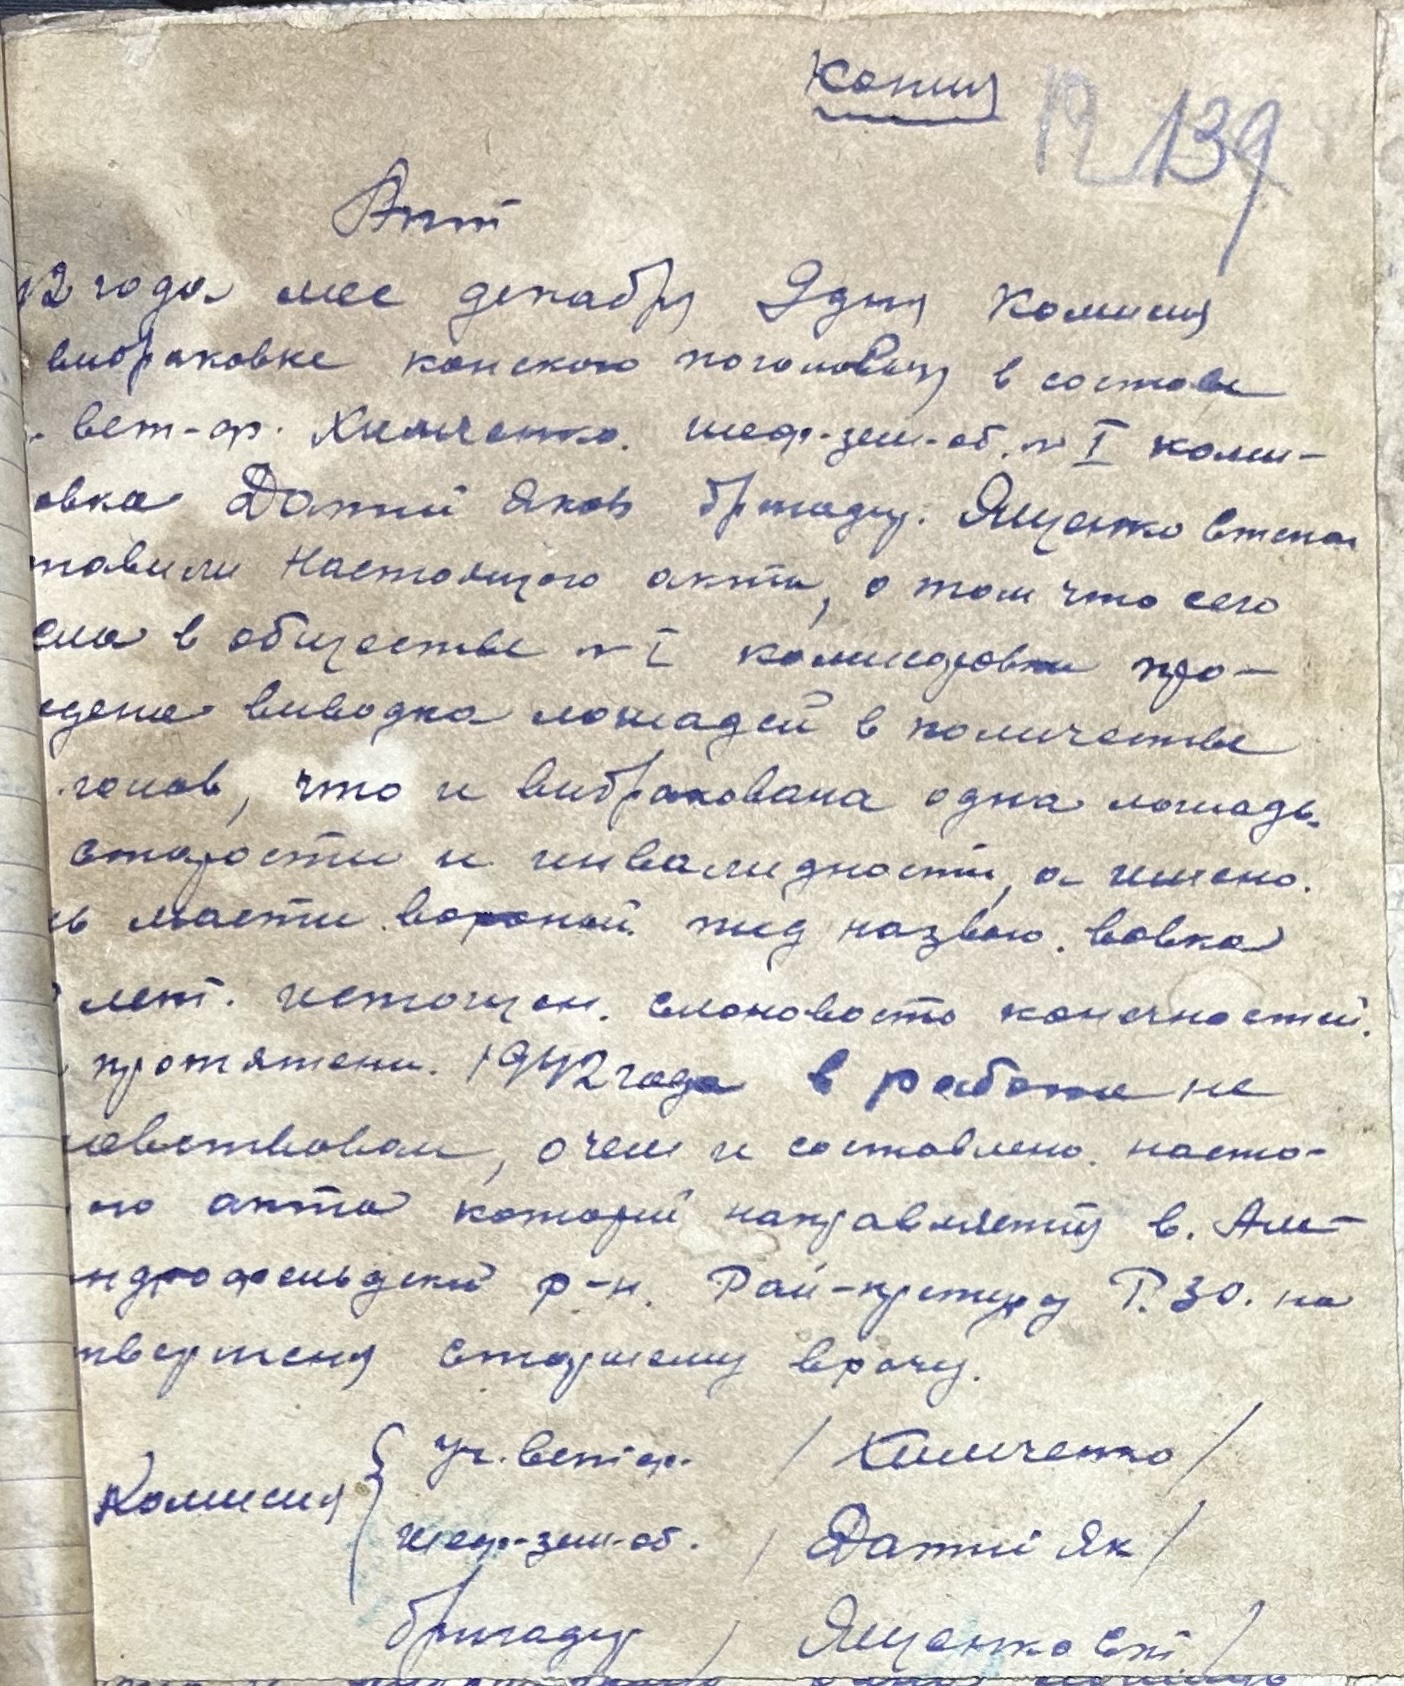 Копия
139
Акт
42 года мес декабря 9 дня Комисия
выбраковке конского поголовья в составе
вет-ф. Химченко. шеф-зем-об. № I коми-
овка Датий Яков бригадир. Ященко
тавили Настоящого акта, о том что сего
сла в обществе № I комисаровки про-
едена виводка лошадей в количестве
голов, что и выбракована одна лошадь.
старости и инвалидности, а имено.
ь масти вороной. под назвою. вовка
лет. истощен. слоновость конечностей.
протяжени. 1942 года в работе не
вствовал, о чем и составлено. насто-
ого акта который направляется в. Але-
ндрофельдский р-н. Рай- Р.ЗО. на
тверженя старшему врачу.
Комисия
Уч. ветф. / Химченко /
шеф-зем-об. / Датий Як /
бригадир / Ященко /